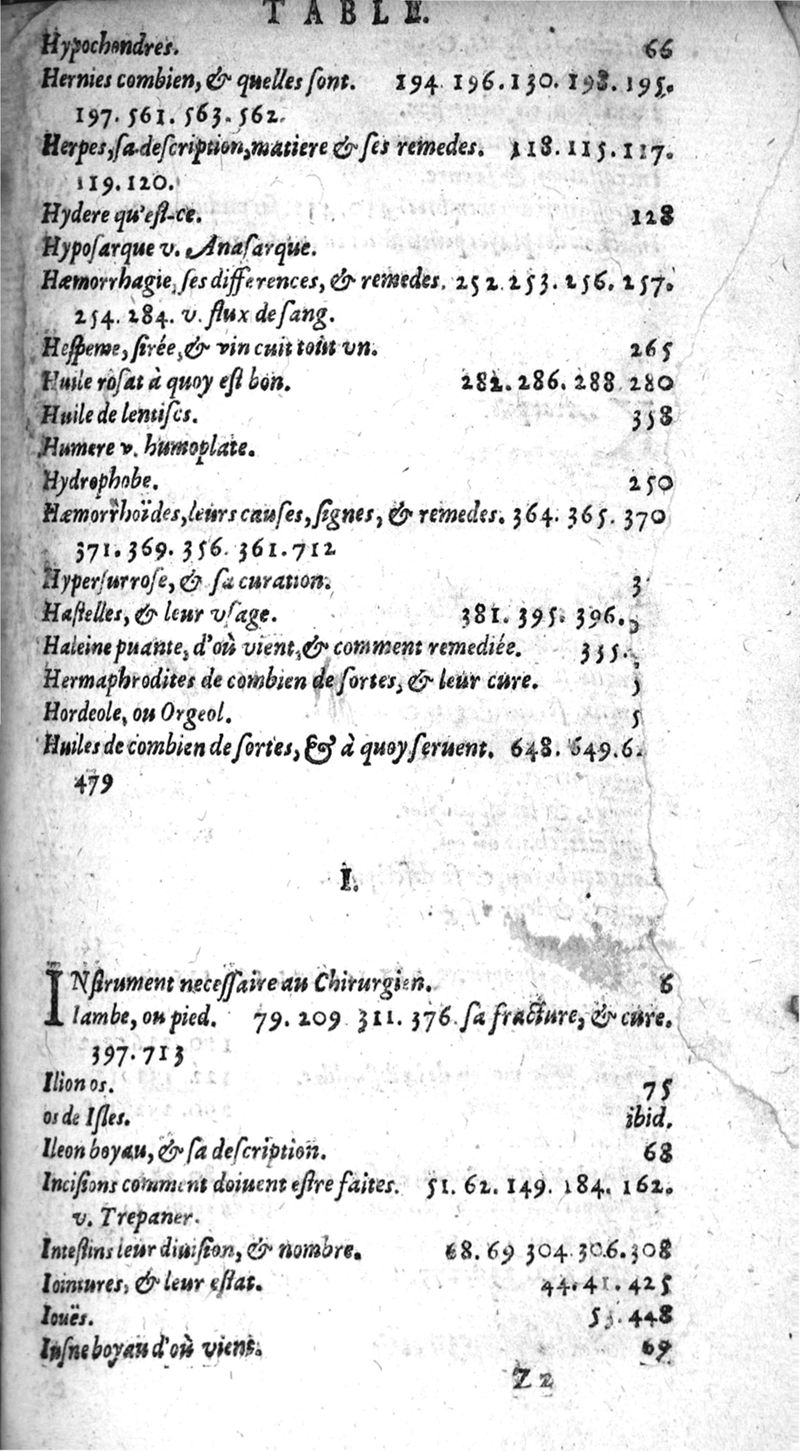 TABLE.
Hypochondres. 66
Hernies combien, & quelles ſont. 194. 196. 130. 198. 195.
197. 561. 563. 562.
Herpes, ſa deſcription, matiere & ſes remedes. 118. 115. 117.
119. 120.
Hydere qu'eſt-ce. 128
Hypoſarque v. Anaſarque.
Hæmorrhagie, ſes differences, & remedes. 252. 253. 256. 257.
254. 284. v. flux de ſang.
Heſpeme, ſirée, & vin cuit tout vn. 265
Huile roſat à quoy eſt bon. 282. 286. 288. 280
Huile de lentiſcs. 358
Humere v. humoplate.
Hydrophobe. 250
Hæmorrhoïdes, leurs cauſes, ſignes, & remedes. 364. 365. 370
371. 369. 356. 361. 712
Hyperſurroſe, & ſa curation. 3
Haſtelles, & leur vſage. 381. 395. 396.
Haleine puante, d'où vient, & comment remediée. 355.
Hermaphrodites de combien de ſortes, & leur cure.
Hordeole, ou Orgeol. 5
Huiles de combien de ſortes, & à quoy ſeruent. 648. 649. 6.
479
I.
INſtrument neceſſaire au Chirurgien. 6
Iambe, ou pied. 79. 209. 311. 376. ſa fracture, & cure.
397. 713
Ilion os. 75
os de Iſles. ibid.
Ileon boyau, & ſa deſcription. 68
Inciſions comment doiuent eſtre faites. 51. 62. 149. 184. 162.
v. Trepaner.
Inteſtins leur diuiſion, & nombre. 68. 69. 304. 306. 308
Iointures, & leur eſtat. 44. 41. 425
Iouës. 448
Iuſne boyau d'où vient. 69
Z 2